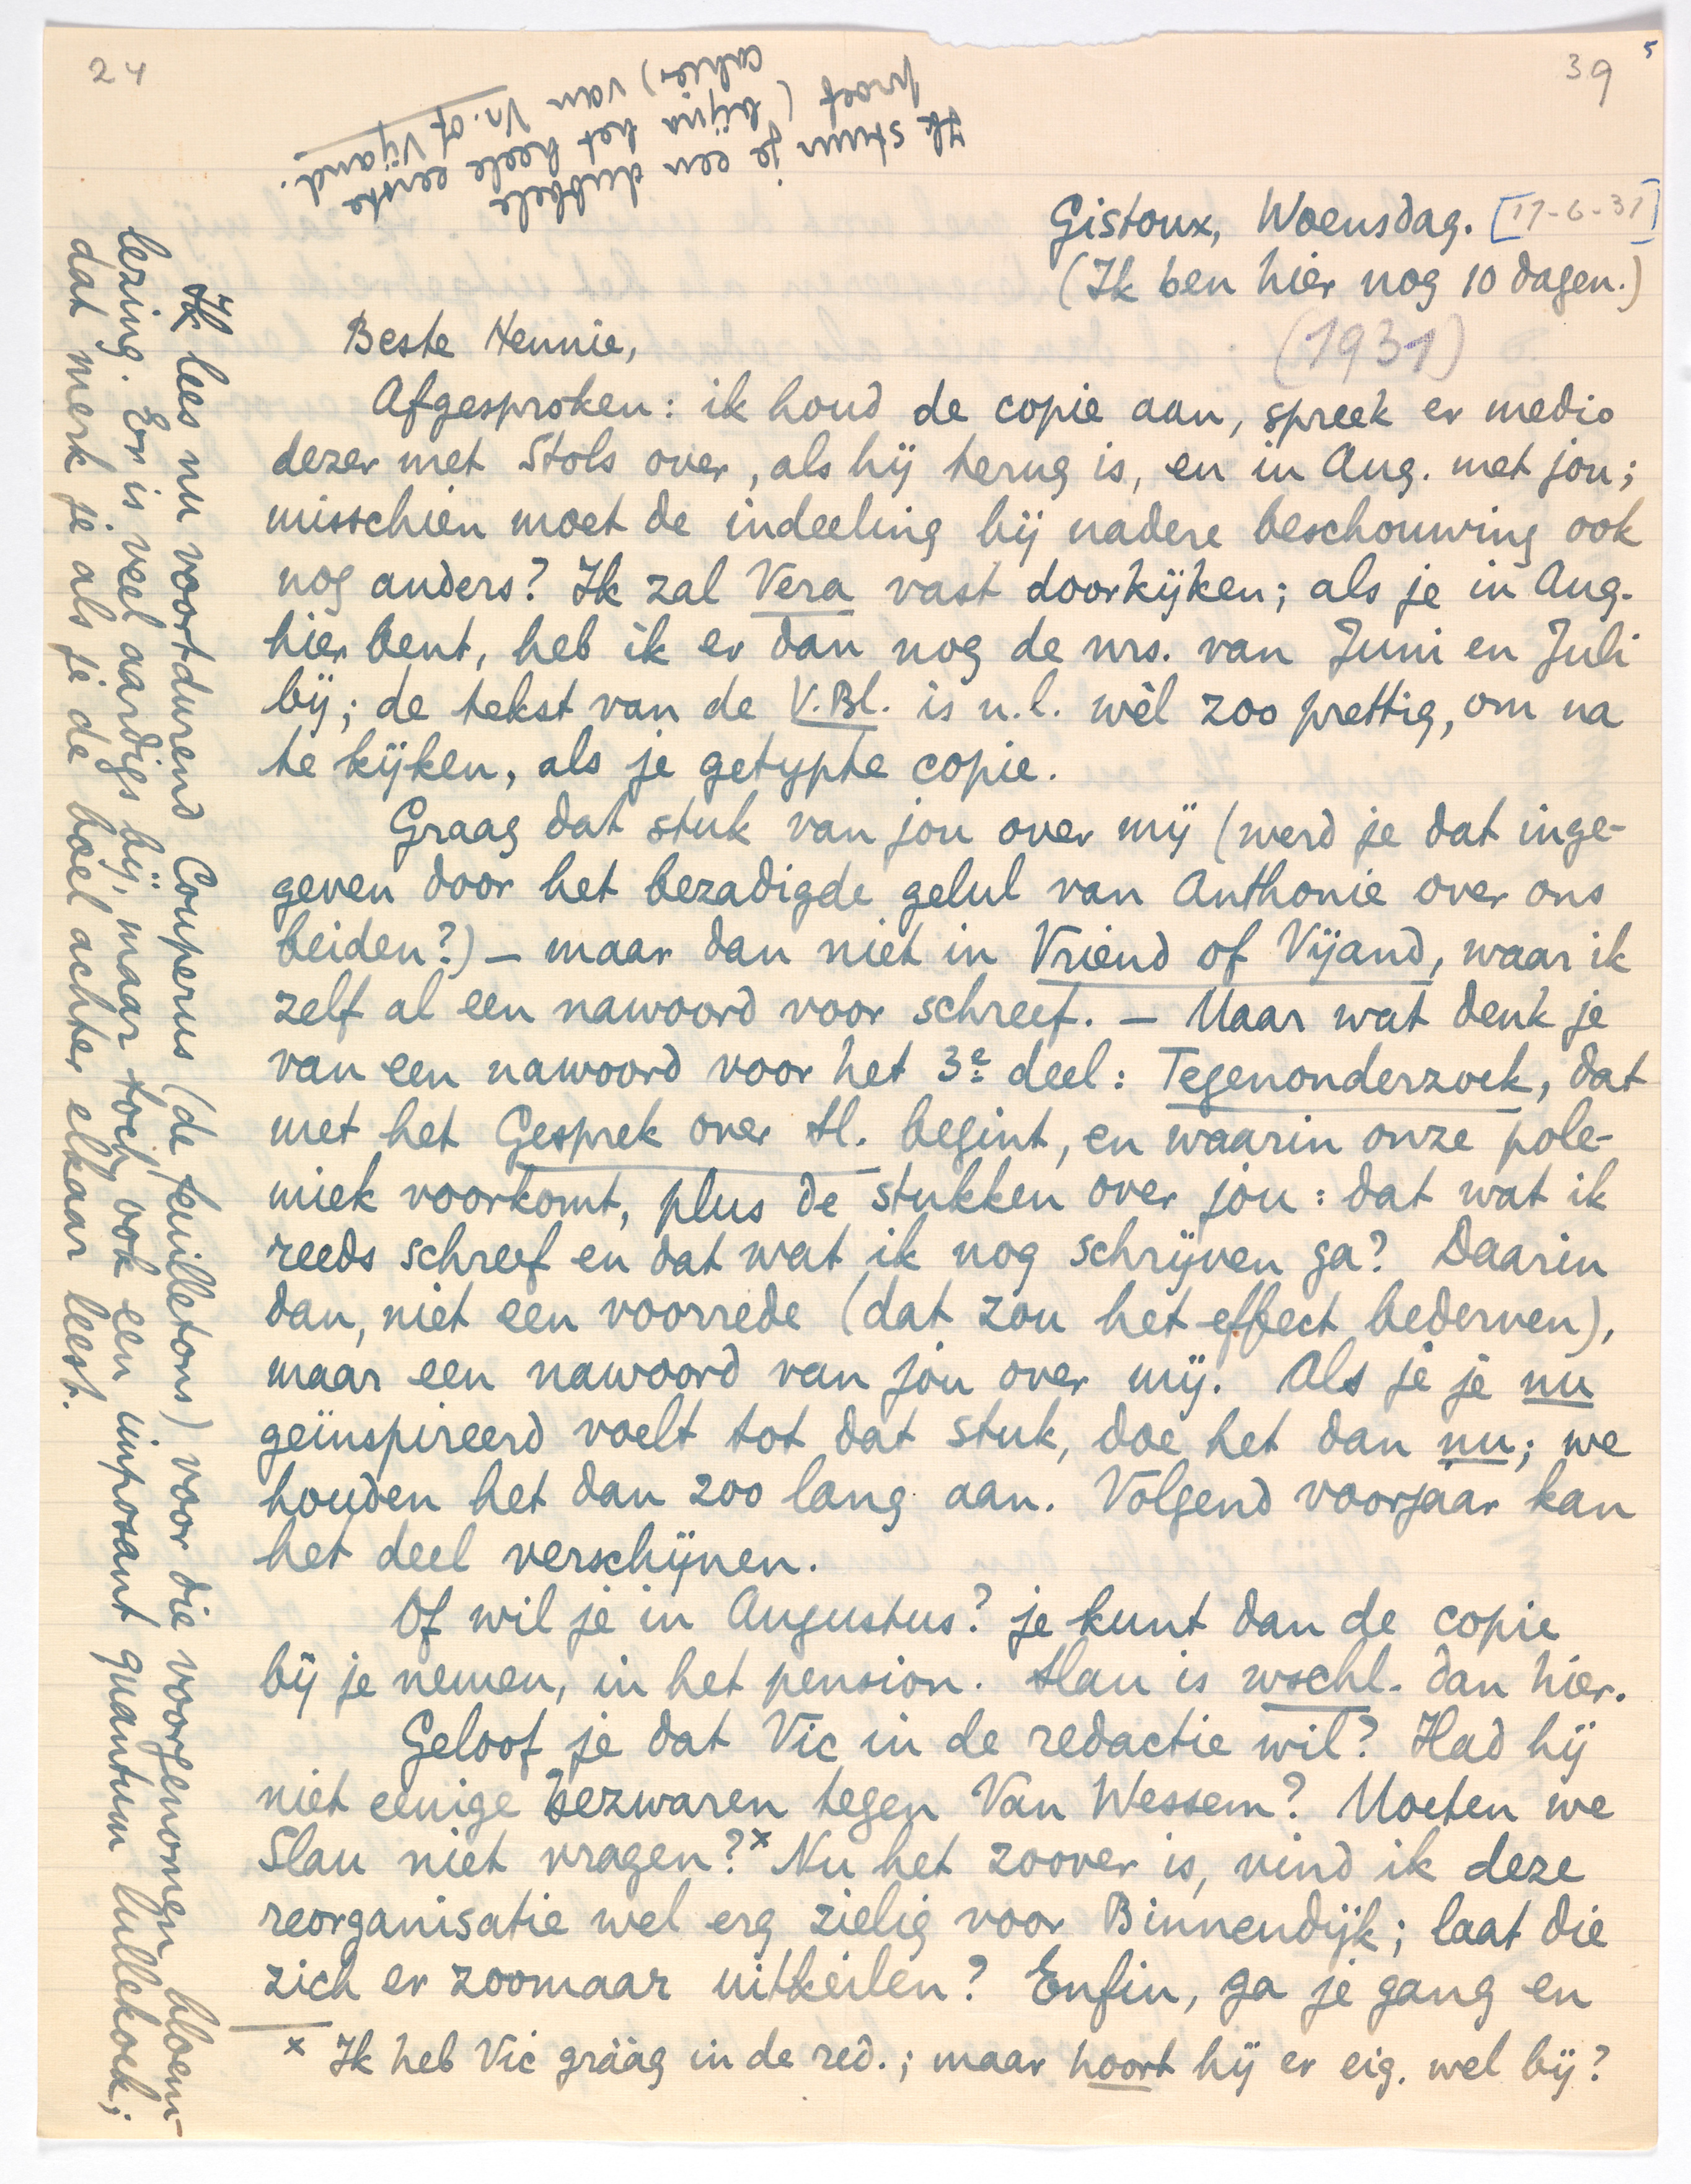 24
39 5
Ik stuur je een dubbele
proef (bijna het heele eerste
cahier) van Vr. of Vijand.
Gistoux, Woensdag. [17-6-31]
(Ik ben hier nog 10 dagen.)
(1931)
Beste Hennie,
Afgesproken: ik houd de copie aan, spreek er medio
dezer met Stols over, als hij terug is, en in Aug. met jou;
misschien moet de indeeling bij nadere beschouwing ook
nog anders? Ik zal Vera vast doorkijken; als je in Aug.
hier bent, heb ik er dan nog de nrs. van Juni en Juli
bij; de tekst van de V.Bl. is n.l. wèl zoo prettig, om na
te kijken, als je getypte copie.
Graag dat stuk van jou over mij (werd je dat inge-
geven door het bezadigde gelul van Anthonie over ons
beiden?) — maar dan niet in Vriend of Vijand, waar ik
zelf al een nawoord voor schreef. — Maar wat denk je
van een nawoord voor het 3e deel: Tegenonderzoek, dat
met het Gesprek over Sl. begint, en waarin onze pole-
miek voorkomt, plus de stukken over jou: dat wat ik
reeds schreef en dat wat ik nog schrijven ga? Daarin
dan, niet een voorrede (dat zou het effect bederven),
maar een nawoord van jòu over mij. Als je je nu
geïnspireerd voelt tot dat stuk, doe het dan nu; we
houden het dan zoo lang aan. Volgend voorjaar kan
het deel verschijnen.
Of wil je in Augustus? je kunt dan de copie
bij je nemen, in het pension. Slau is wschl. dan hier.
Geloof je dat Vic in de redactie wil? Had hij
niet eenige bezwaren tegen Van Wessem? Moeten we
Slau niet vragen?x Nu het zoover is, vind ik deze
reorganisatie wel erg zielig voor Binnendijk; laat die
zich er zoomaar uitkeilen? Enfin, ga je gang en
x Ik heb Vic gráág in de red.; maar hoort hij er eig. wel bij?
Ik lees nu voortdurend Couperus (de feuilletons) voor die voorgenomen bloem-
lezing. Er is veel aardigs bij, maar toch ook een imposant quantum lullekoek;
dat merk je als je de boel achter elkaar leest.